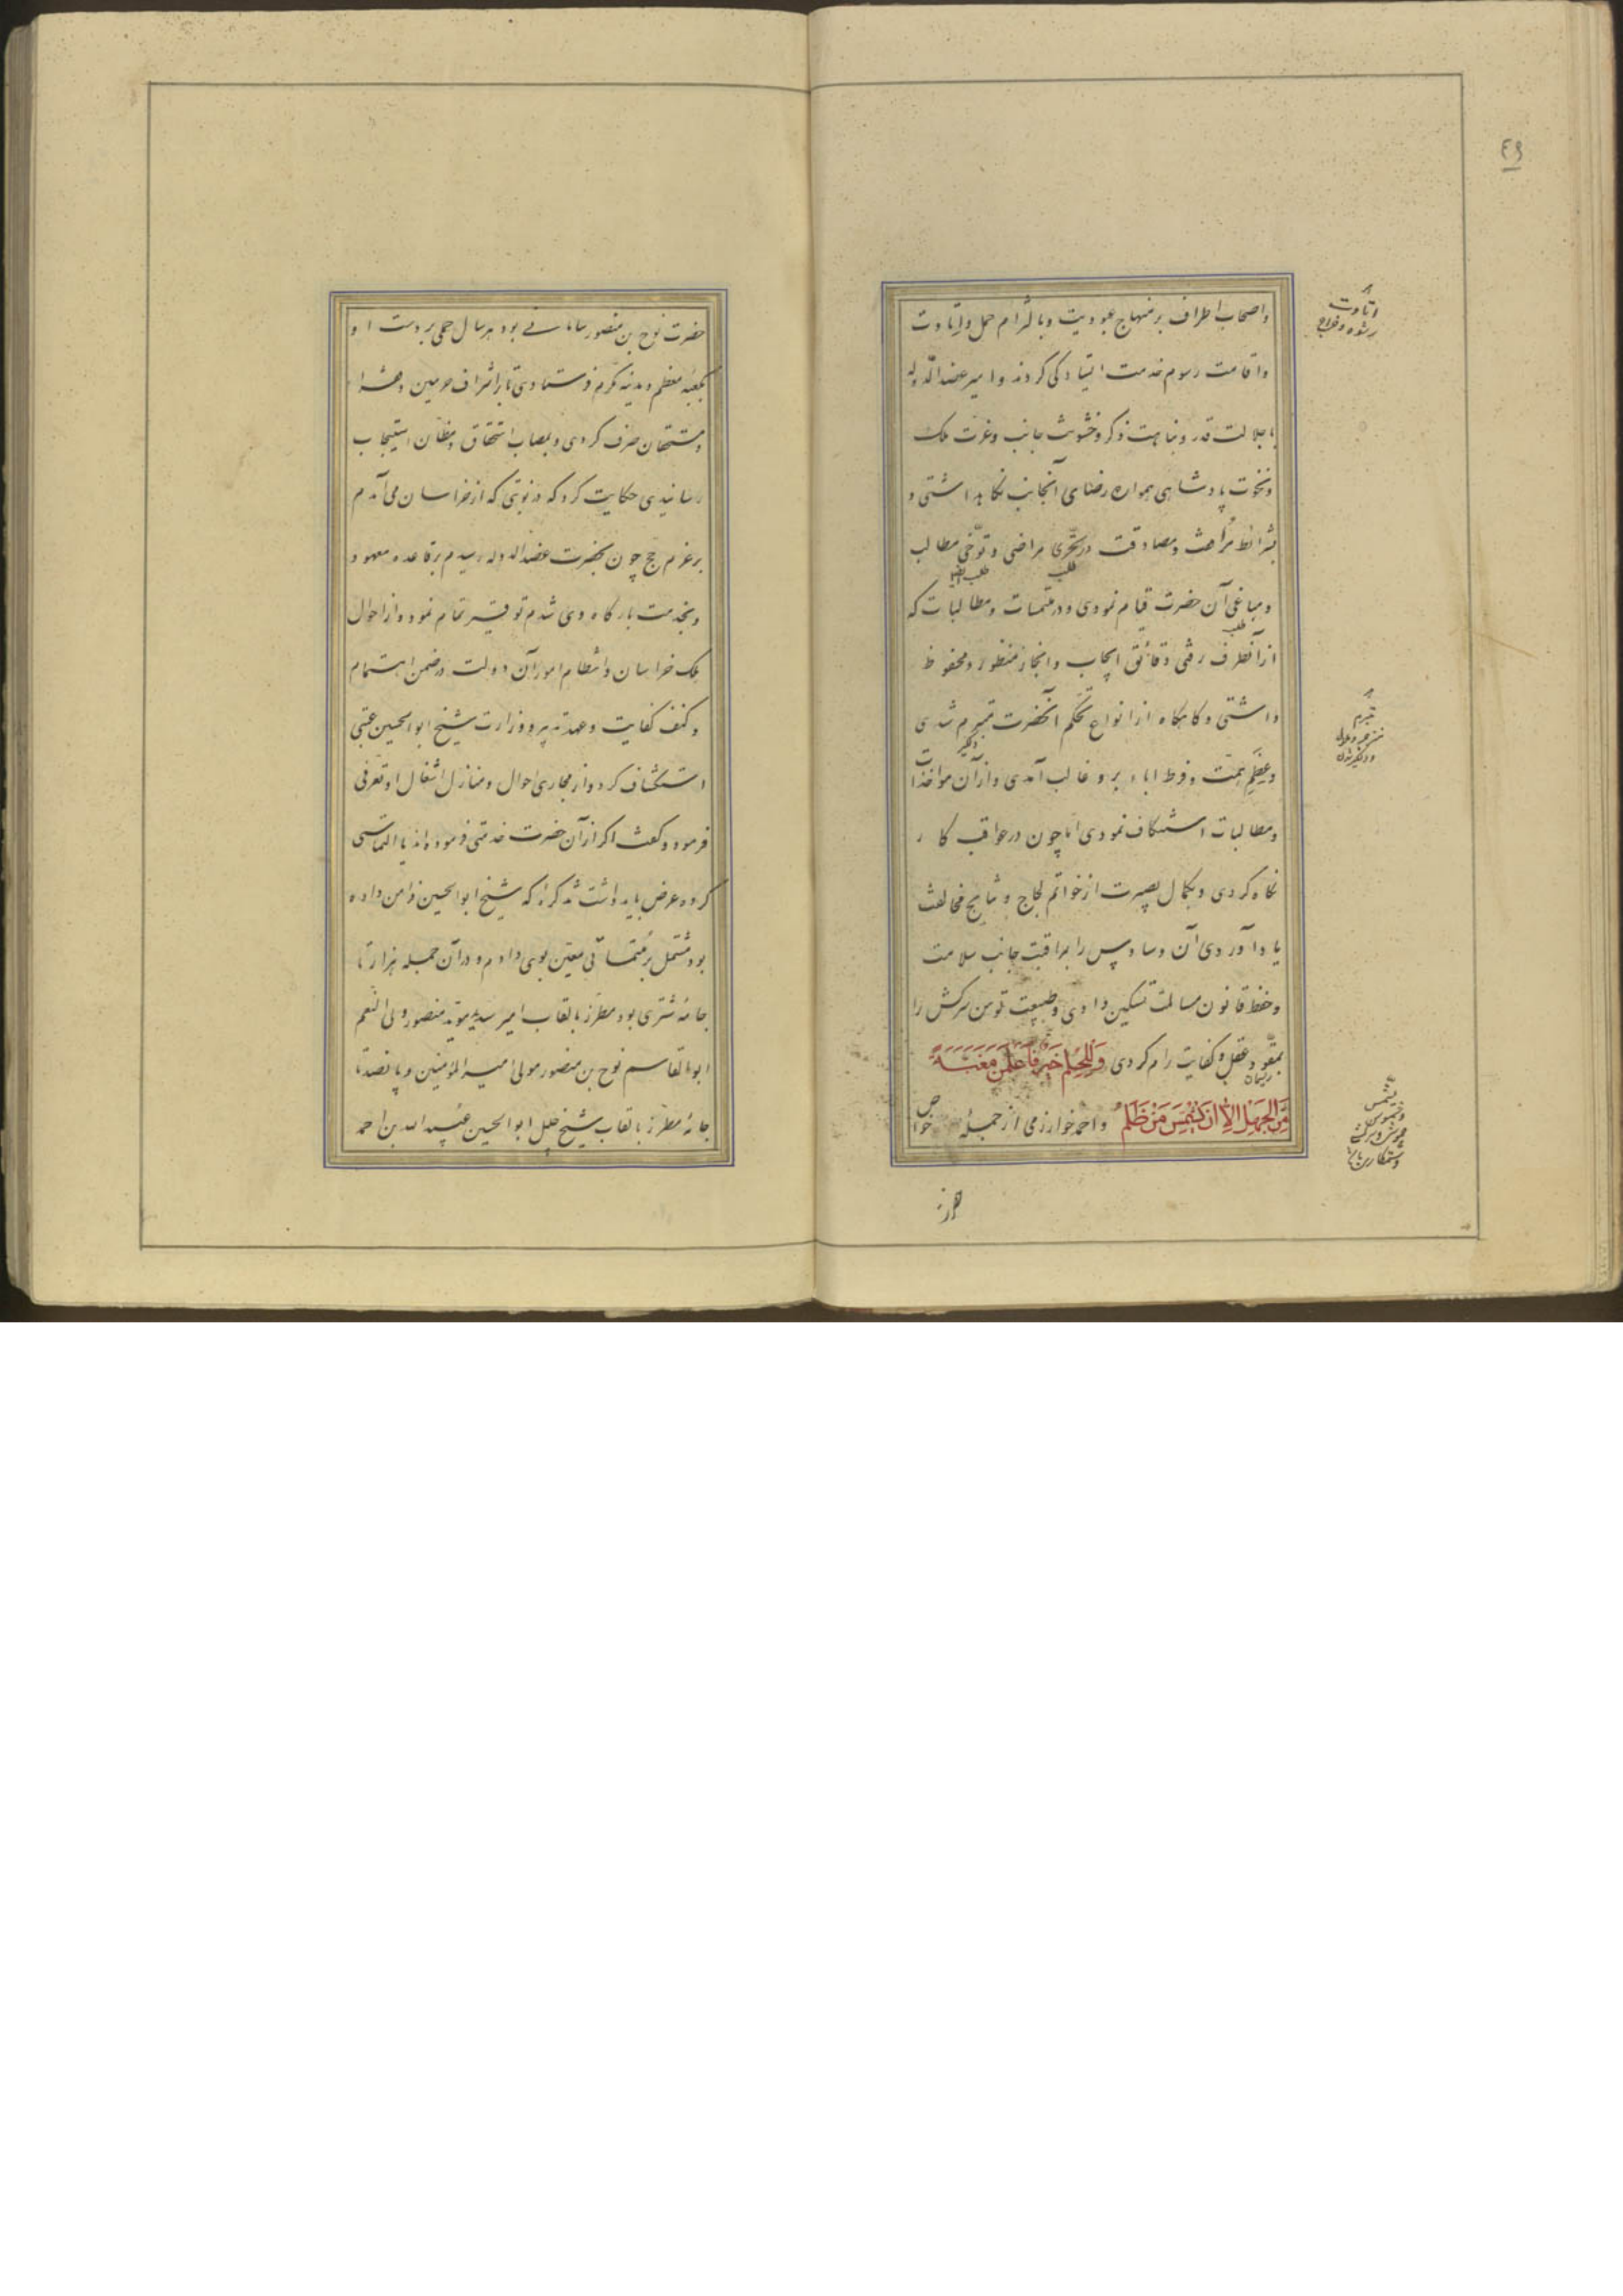 ٤٩
واصحاب اطراف بر منهاج عبودیت وبالتزام حمل واتاوت
واقامت رسوم خدمت ایستادگی کردند وامیر عضدالدّوله
با جلالت قدر ونباهت ذکر وخشونت جانب وعزت ملک
ونخوت پادشاهی همواره رضای آنجانب نگاهداشتی و
بشرائط مراحمت ومصادقت در تحرّی مراضی وتوخّی مطالب
ومباغی آن حضرت قیام نمودی ودر ملتمسات ومطالبات که
از آنطرف رفتی دقائق ایجاب وانجاز منظور ومحفوظ
داشتی وگاهگاه از انواع تحکم آنحضرت متبرم شدی
وعظم همّت وفرط اباء برو غالب آمدی واز آن مواخذات
ومطالبات استنکاف نمودی امّا چون در عواقب کار
نگاه کردی وبکمال بصیرت از خواتم لجاج ونتایج مخالفت
یاد آوردی آن وساوس را بمراقبت جانب سلامت
وحفظ قانون مسالمت تسکین دادی وطبیعت توسن سرکش را
بمقود عقل وکفایت رام کردی وَلَلْحِلْمُ خَیْرٌ فَاعْلَمَنَّ مَغَبَّةً
مِّنَ الجَهْلِ اِلّا اَنْ تُشَمَّسَ مِنْ ظُلْمٍ واحمد خوارزمی از جمله خواص
اتاوت
رشوه وخراج
طلب
طلب
تبرم
دلگیر
ریسمان
تشمس
حضرت
حضرت نوح بن منصور سامانی بود هر سال حملی بر دست او
بکعبه معظم ومدینه مکرم فرستادی تا بر اشراف حرمین وفقرا
ومستحقان صرف کردی وبمصاب استحقاق ومظان استیجاب
رسانیدی حکایت کرد که در نوبتی که از خراسان می آمدم
بر عزم حج چون بحضرت عضدالدوله رسیدم بر قاعده معهود
وبخدمت بارگاه وی شدم توقیر تمام نمود واز احوال
ملک خراسان وانتظام امور آن دولت در ضمن اهتمام
وکنف کفایت وعهده تدبیر ووزارت شیخ ابوالحسین عتبی
استکشاف کرد واز مجاری احوال ومنازل اشغال او تعرفی
فرمود وگفت اگر از آن حضرت خدمتی فرموده اند یا التماسی
کرده عرض باید داشت تذکره که شیخ ابوالحسین فرا من داده
بود مشتمل بر ملتمساتی معیّن بوی دادم ودر آن جمله هزار تا
جامه شتری بود مطرّز بالقاب امیر سیّد مؤید منصور ولی النّعم
ابوالقاسم نوح بن منصور مولی امیرالمؤمنین وپانصد تا
جامه مطرّز بالقاب شیخ جلیل ابوالحسین عبیدالله بن احمد